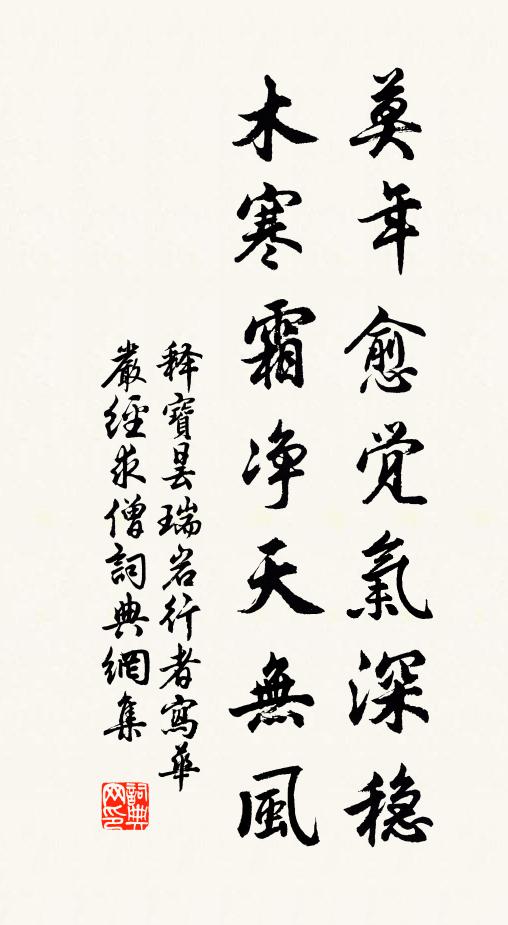 莫年愈觉氣深穏
木寒霜净天無風
释寶昙瑞岩行者寫華
嚴經求僧詞典網集
詞典
网印